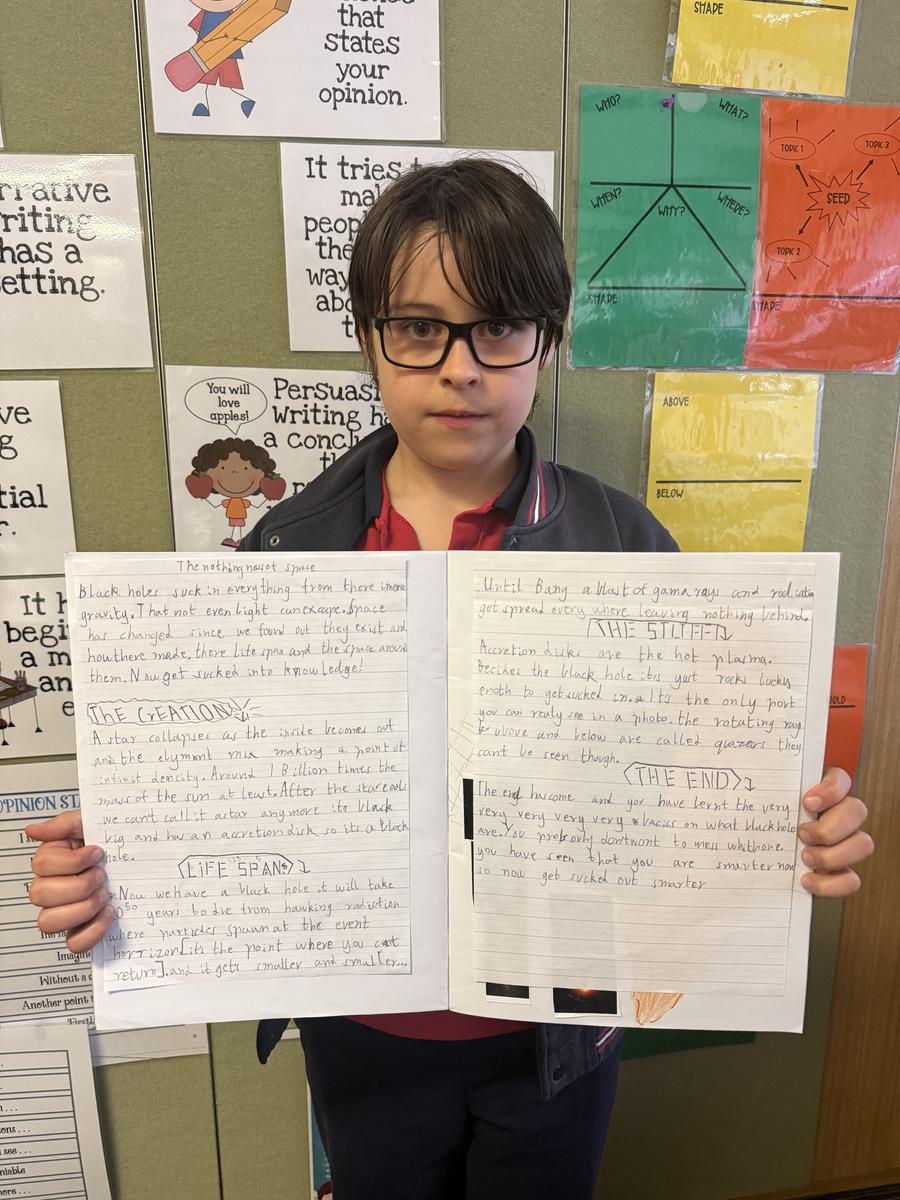 that
states
your
opinion.
SHADE
WHO?
WHAT?
WHEN?
WHY?
WHERE?
SHADE
TOPIC 1
TOPIC 3
SEED
TOPIC 2
SHADE
rrative
riting
has a
etting.
It tries t
mak
peop
the
way
abo
t
You will
love
apples!
Persuasi
Writing ha
a conclu
th
ABOVE
BELOW
ve
g
tial
r.
It h
begi
a m
an
e
OPINION STA
Imagin
Without a
Another point
First
The nothingnes of space
Black holes suck in everything from there imense
gravity. That not even light can excape. Space
has changed since we found out they exist and
how there made, there life span and the space around
them. Now get sucked into knowledge!
THE CREATION
A star collapses as the inside becomes out
and the elyment mix making a point of
infinit dencity. Around 1 Billion times the
mass of the sun at least. After the star cools
we can't call it a star anymore its black
big and has an accretion disk so its a black
hole.
LIFE SPAN
Now we have a black hole it will take
0⁵⁰ years to die from hawking radiation
where particles spawn at the event
horrizon[it's the point where you cant
return]. and it gets smaller and smaller...
Until Bang a blast of gama rays and radiation
get spread every where leaving nothing behind.
THE STUFF
Accretion disks are the hot plasma.
Becides the black hole it's just rocks lucky
enoth to get sucked in. It's the only part
you can realy see in a photo. the rotating ray
above and below are called quazers they
can't be seen though.
THE END
The end has come and you have lernt the very
very very very very basics on what black hole
are. You probably don't want to mess with one.
you have seen that you are smarter now
so now get sucked out smarter